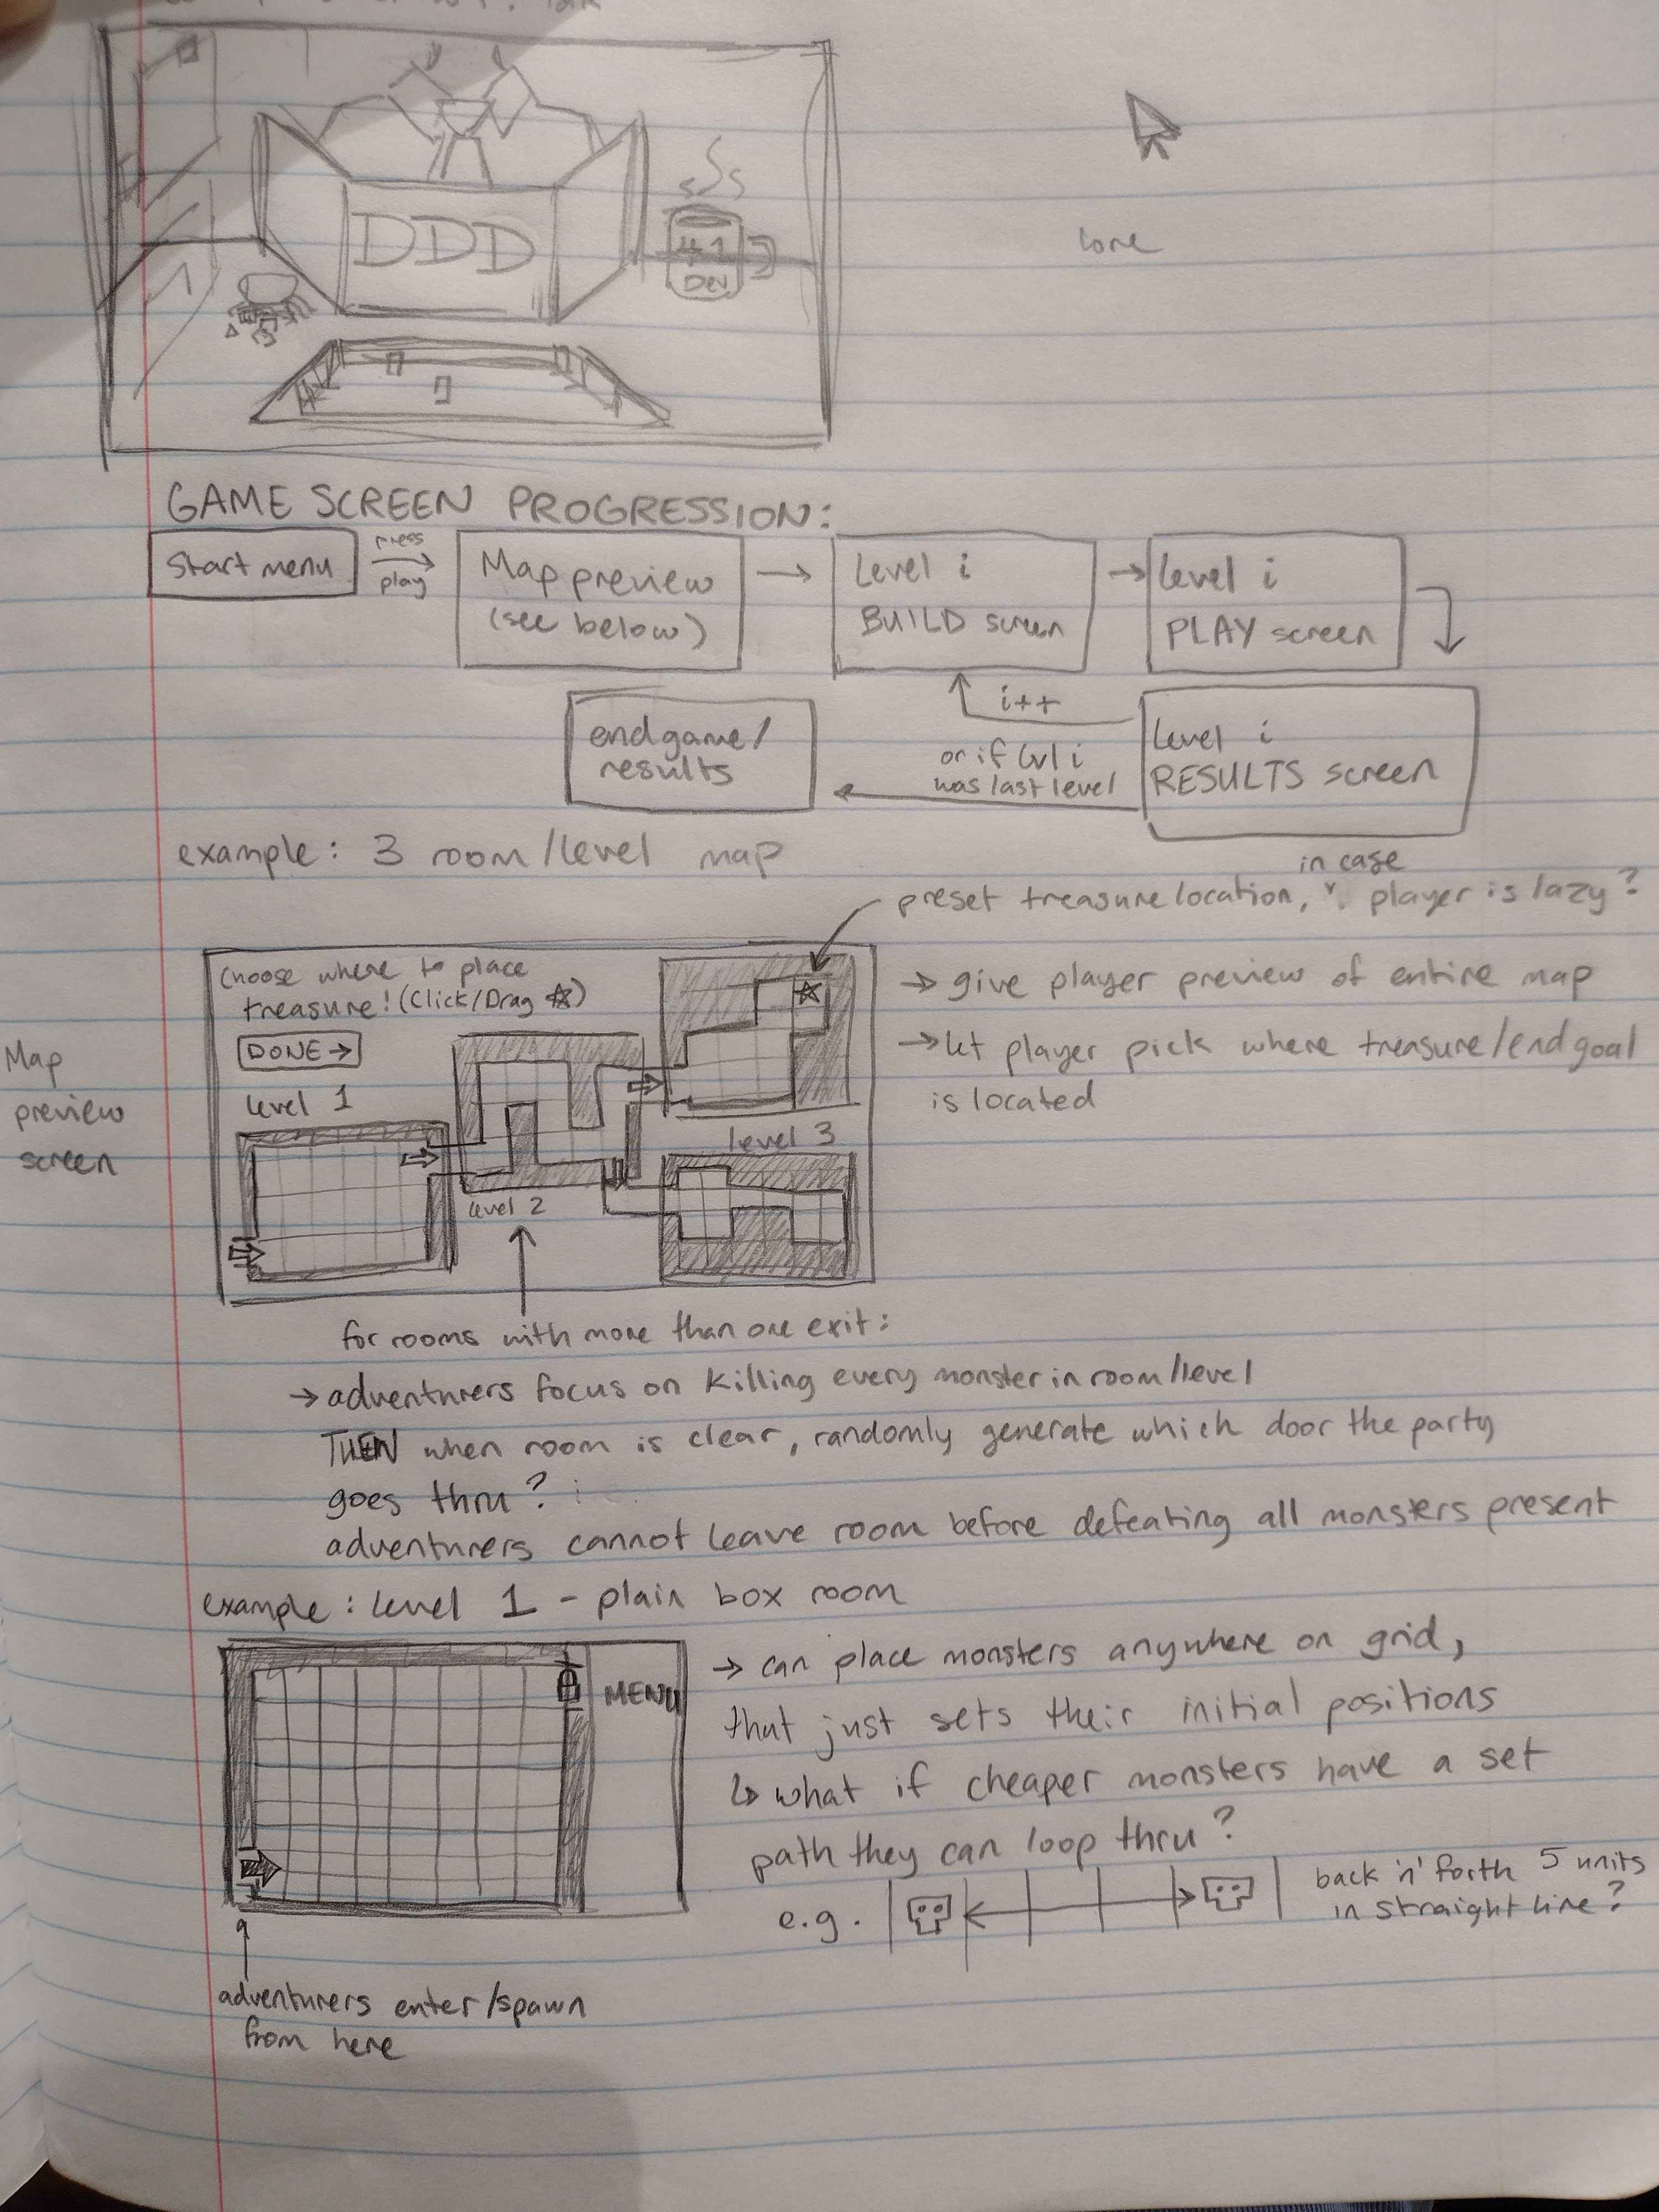 DDD
#1
Dev
lore
GAME SCREEN PROGRESSION:
Start menu
press
play
Map preview
(see below)
Level i
BUILD screen
Level i
PLAY screen
i++
Level i
RESULTS screen
or if lvl i
was last level
endgame/
results
example: 3 room/level map
in case
preset treasure location, player is lazy?
→ give player preview of entire map
→ let player pick where treasure/end goal
is located
Map
preview
screen
Choose where to place
treasure! (Click/Drag ☆)
DONE →
level 1
level 2
level 3
for rooms with more than one exit:
→ adventurers focus on killing every monster in room/level
THEN when room is clear, randomly generate which door the party
goes thru?
adventurers cannot leave room before defeating all monsters present
example: level 1 - plain box room
MENU
→ can place monsters anywhere on grid,
that just sets their initial positions
↳ what if cheaper monsters have a set
path they can loop thru?
e.g.
back 'n' forth 5 units
in straight line?
adventurers enter/spawn
from here